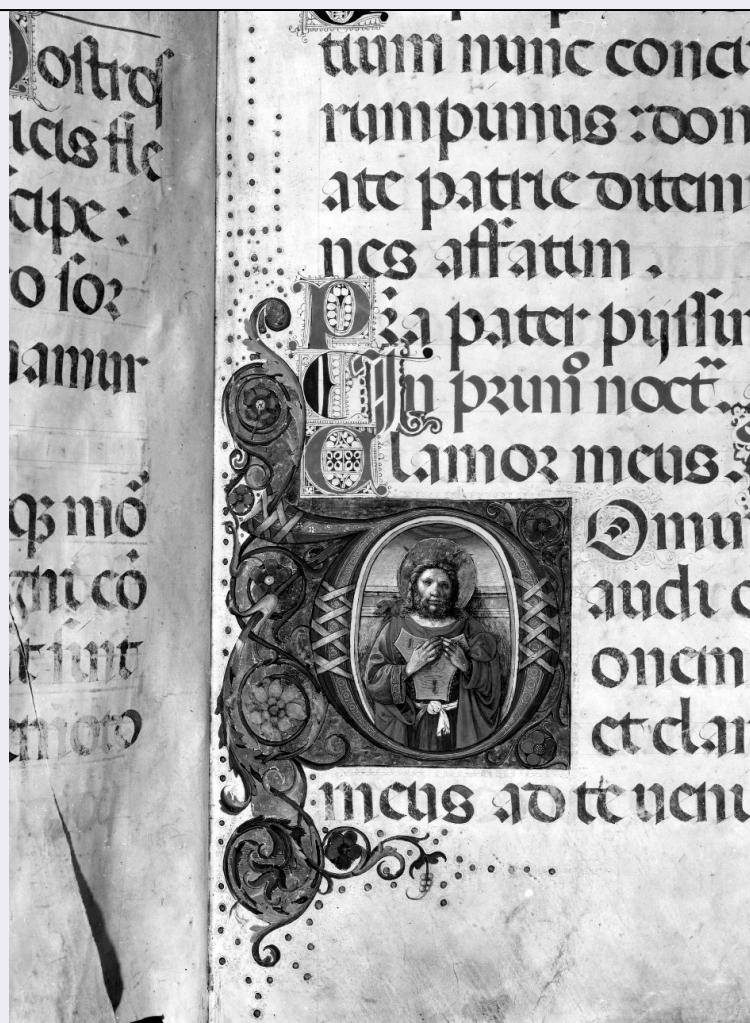 ostros
icis sic
cipe :
o for
namur
qz mō
gni cō
t sunt
emoto
tium nunc conci
rumpimus : don
ate patrie ditem
nes affatim .
Pza pater pijssim
In primo noct.
clamor meus .
Domi
audi o
onem
et clam
meus ad te veni